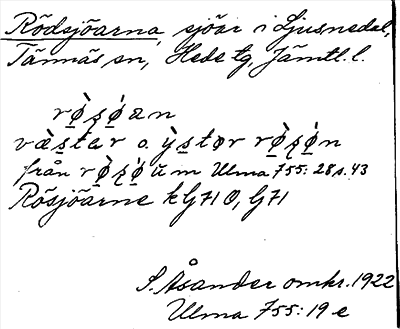 Rödsjöarna, sjöar i Ljusnedal,
Tännäs sn, Hede tg, Jämtl. l.
rø̀ʂø̀an
væ̀stɐr o. ỳstør rø̀ʂø̀n
från rø̀ʂø̀ŭm Ulma 755: 28 s. 43
Rösjöarne kG71Ö, G71
S. Åsander omkr. 1922
Ulma 755: 19 e